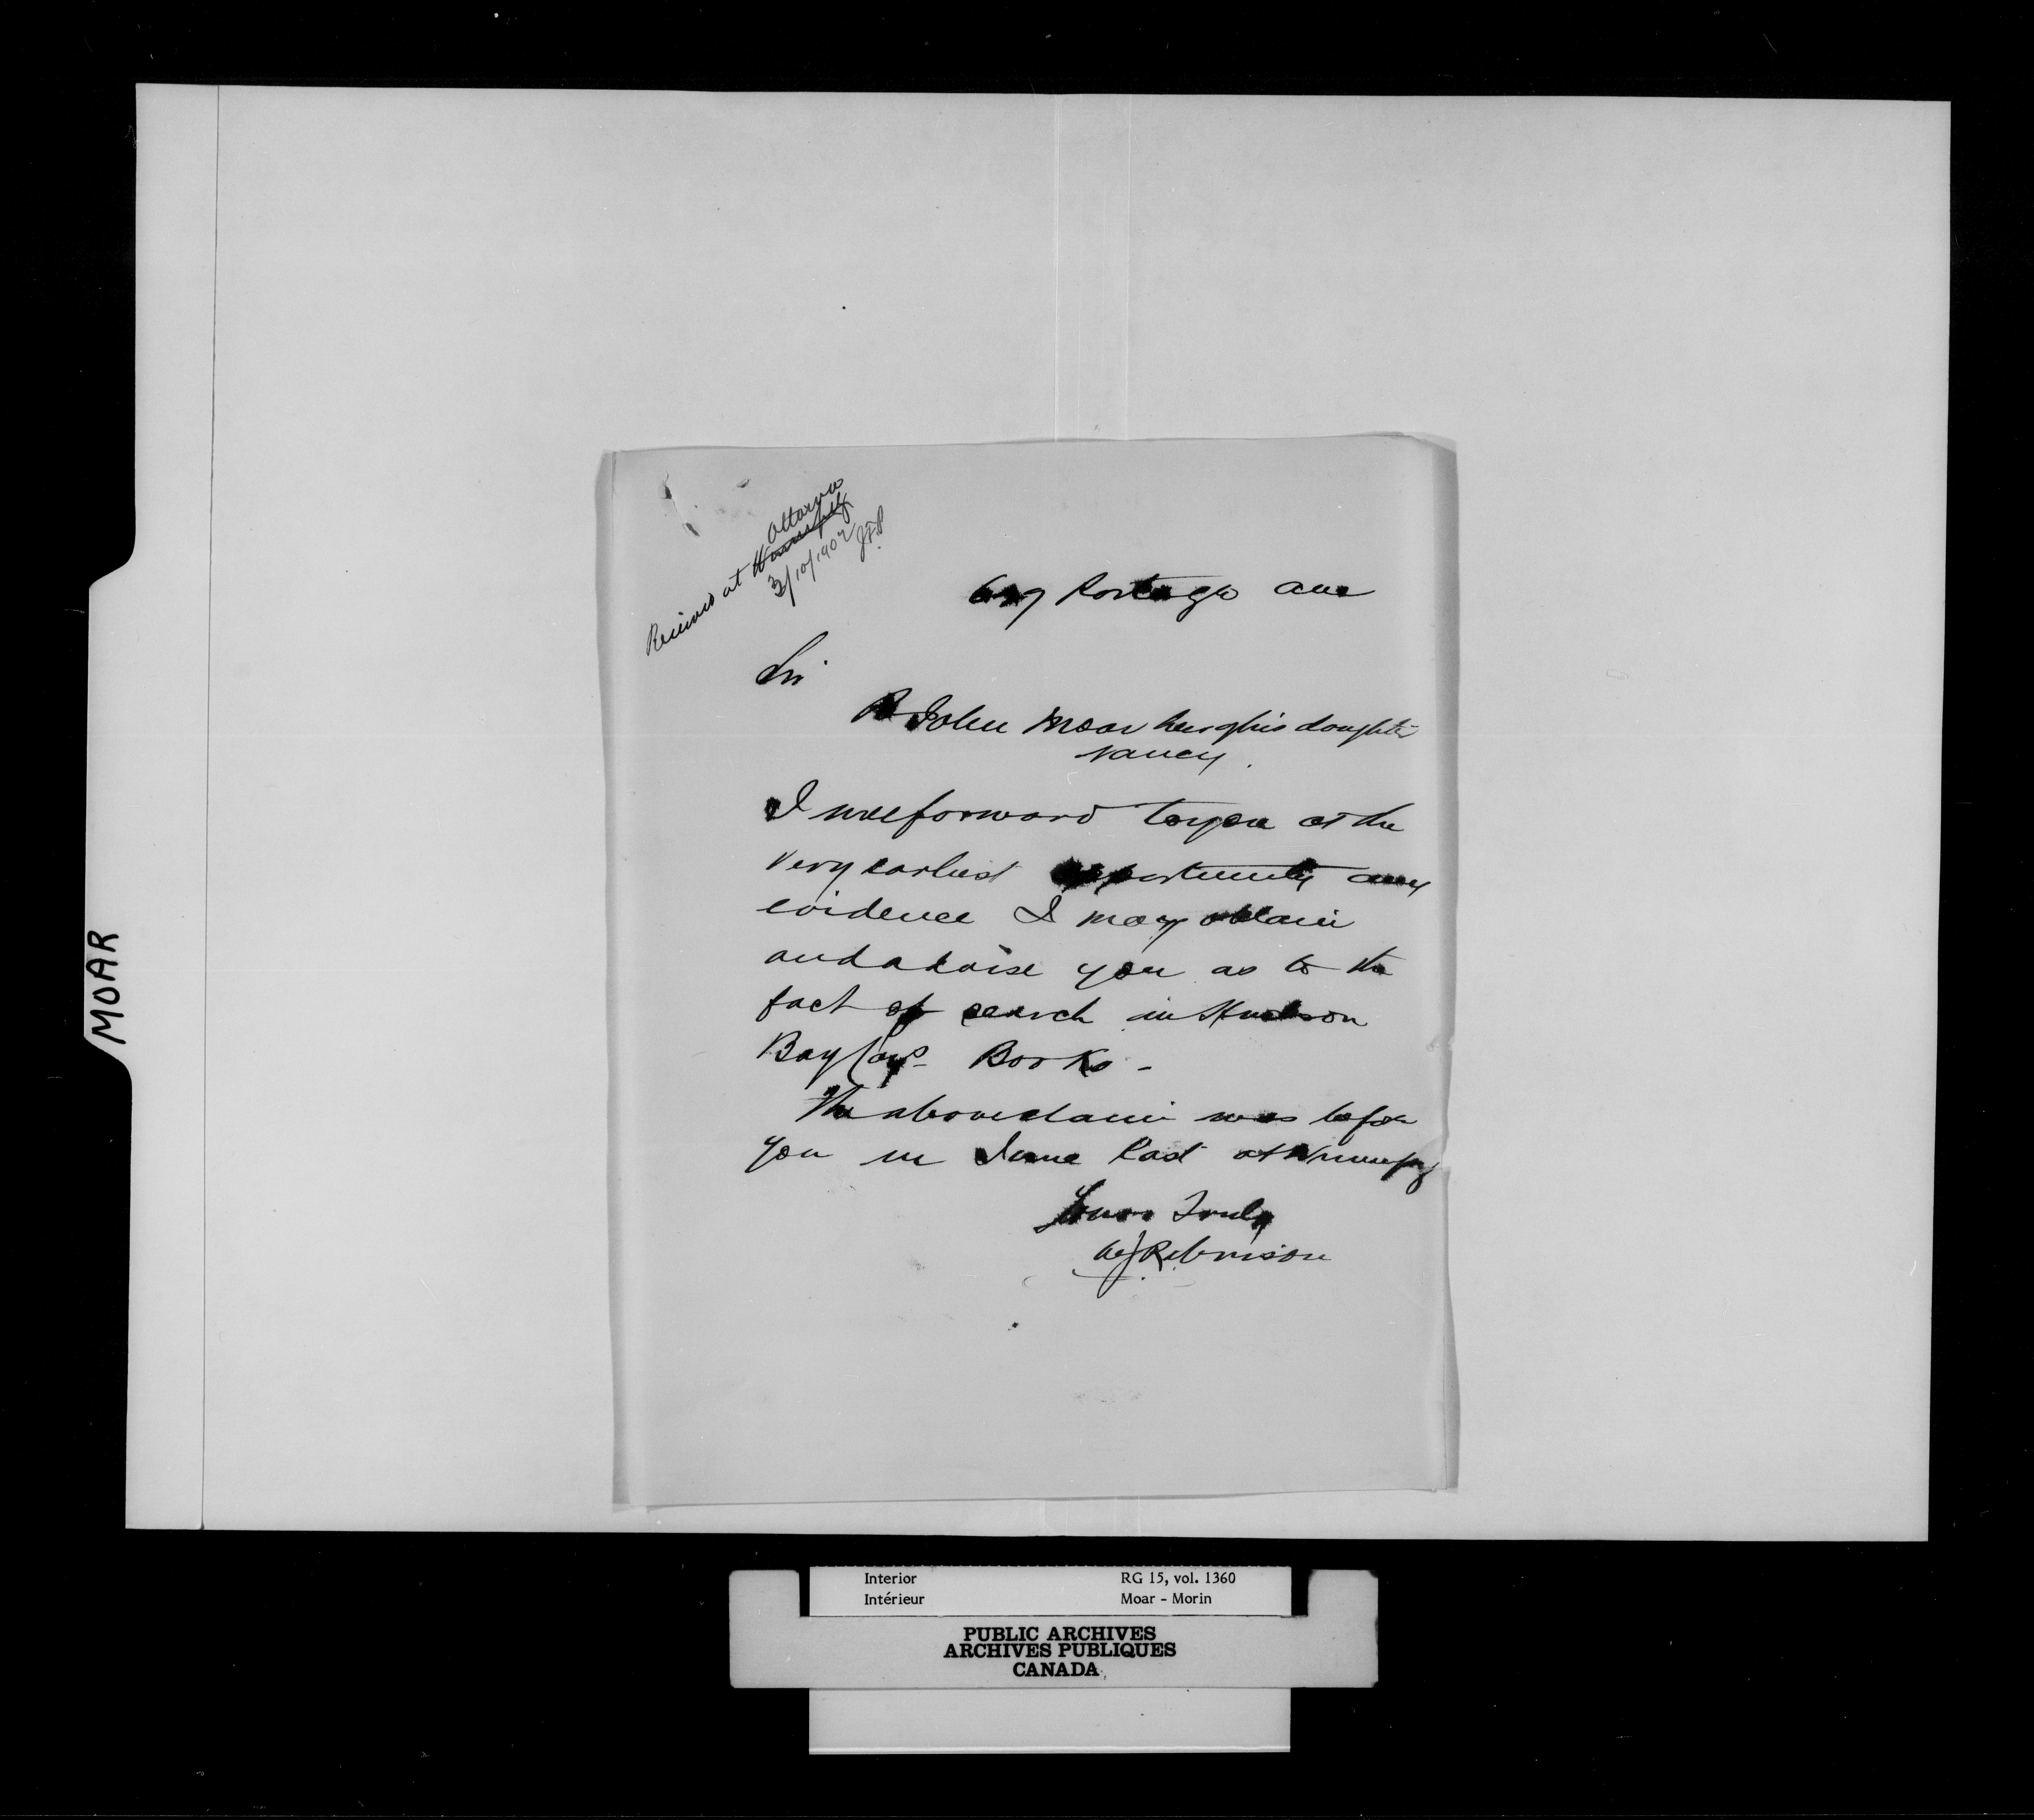 Received at Ottawa
Winnipeg
3/10/1902
Portage Ave
Sir
Re John Moar heir of his daughter
Nancy.
I will forward to you at the
very earliest opportunity any
evidence I may obtain
and advise you as to the
fact of search in Hudson
Bay Coys Books -
The above claim was before
you in June last at Winnipeg
Yours Truly
Robinson
MOAR
Interior RG 15, vol. 1360
Intérieur Moar - Morin
PUBLIC ARCHIVES
ARCHIVES PUBLIQUES
CANADA